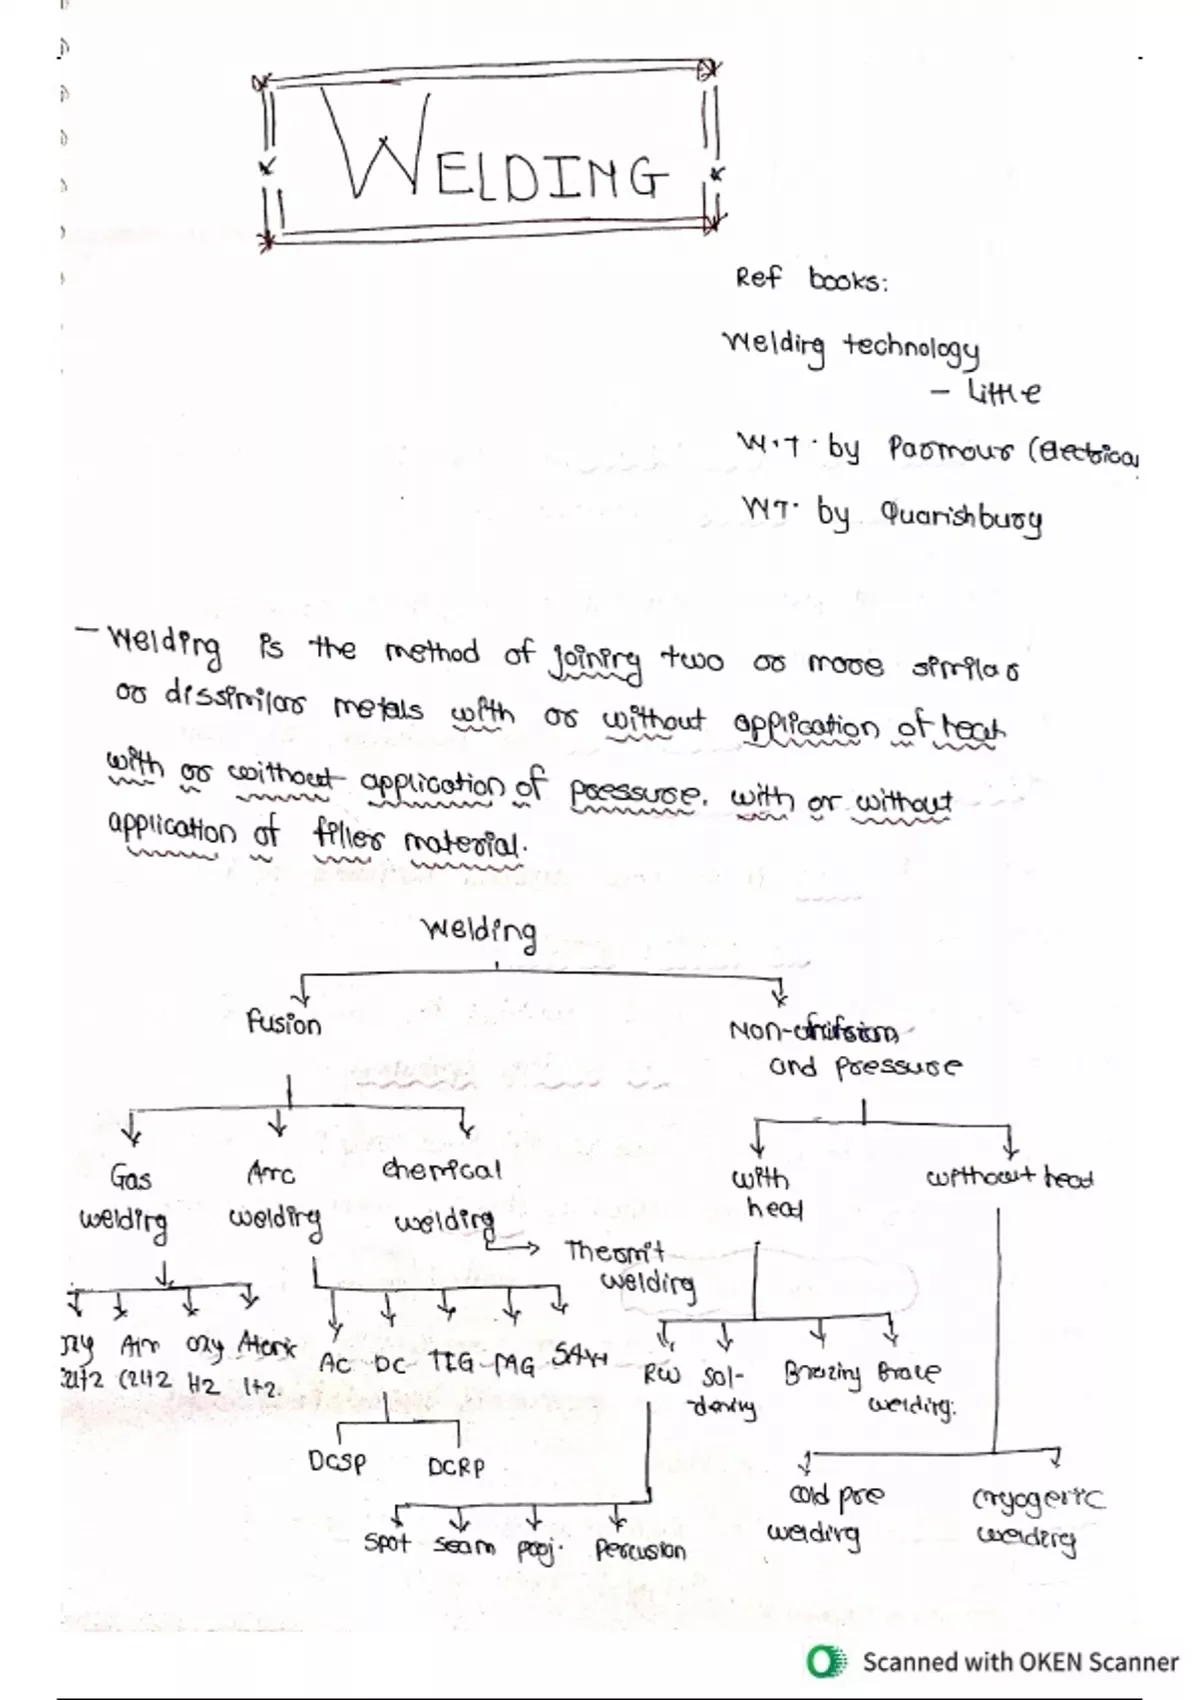 WELDING
Ref books:
Welding technology
- Little
W.T. by Parmour (Electrical
WT. by Quarishbury
- Welding is the method of joining two or more similar
or dissimilar metals with or without application of heat
with or without application of pressure. with or without
application of filler material.
Welding
Fusion
Non-fusion
and pressure
Gas
welding
Arc
welding
chemical
welding
Thermit
welding
with
heat
without heat
Air
C2H2
oxy
H2
Atomic
H2
AC DC TIG MAG SAW
DCSP DCRP
RW
Sol-
dering
Brazing
Braze
welding.
Spot seam proj. Percusion
cold pre
welding
cryogenic
welding
Scanned with OKEN Scanner